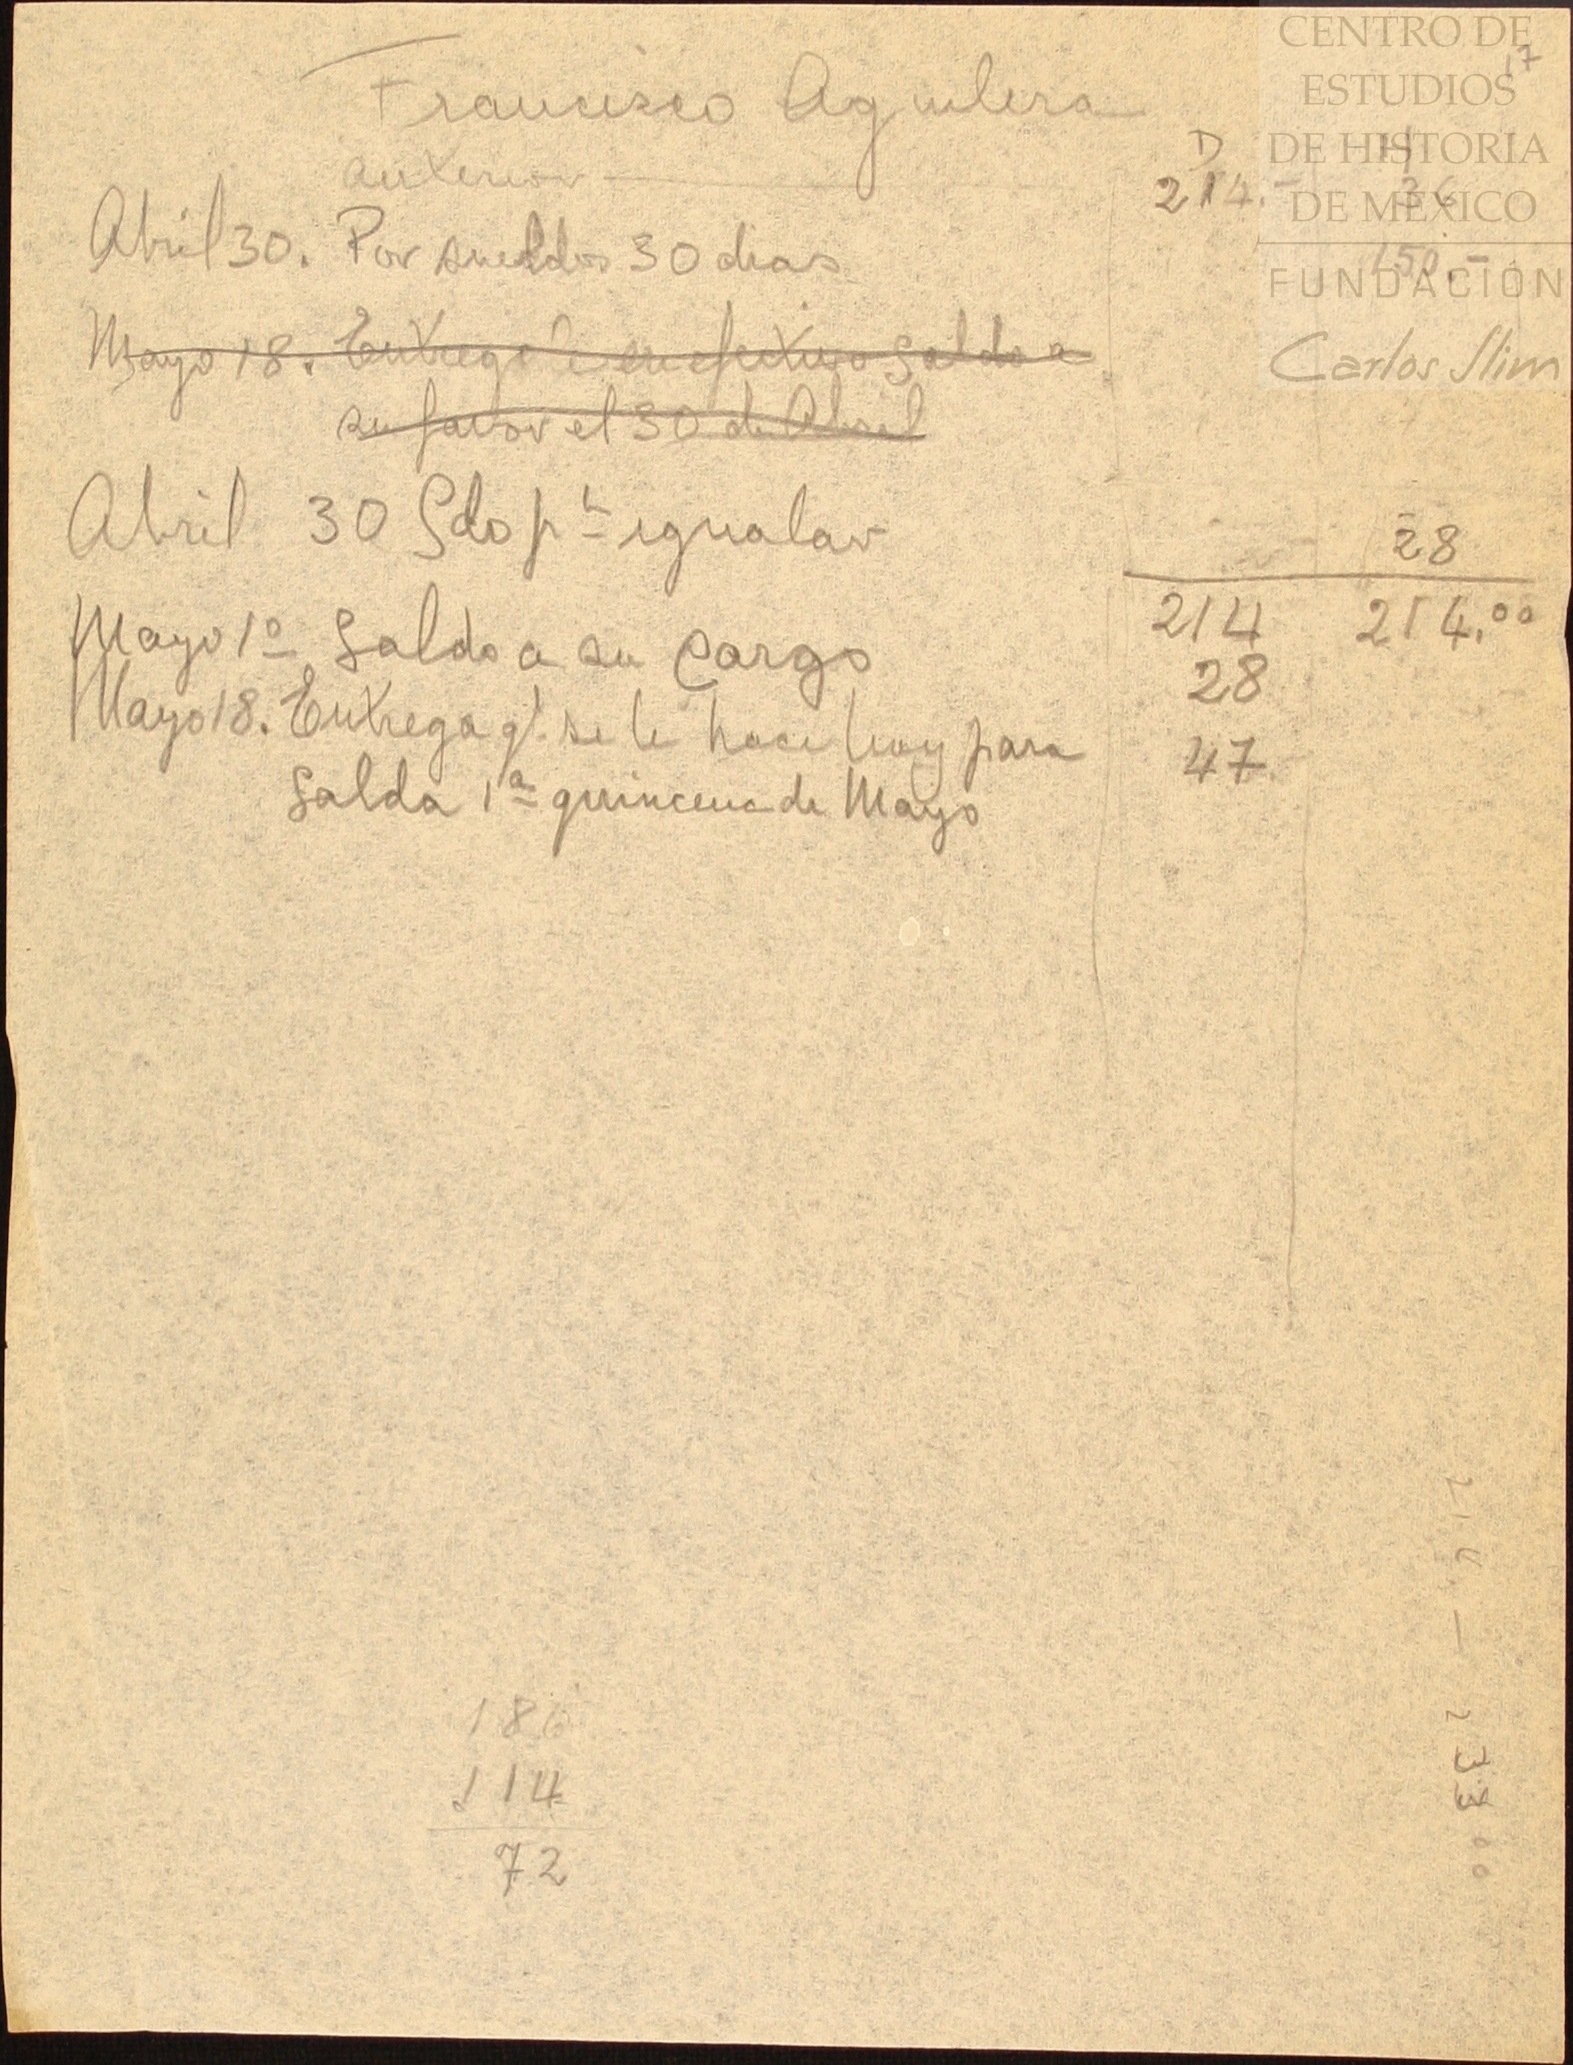 CENTRO DE
ESTUDIOS
DE HISTORIA
DE MÉXICO
FUNDACIÓN
Carlos Slim
17
Francisco Aguilera
D H
anterior 214.- 36
Abril 30. Por sueldos 30 dias 150.-
Mayo 18. Entregué en efectivo saldo a
su favor el 30 de Abril
Abril 30 Sdo pa igualar 28
214 214.00
Mayo 1º Saldo a su cargo 28
Mayo 18. Entrega q. se le hace hoy para 47
salda 1ª quincena de Mayo
214 — 233 00
186
114
72